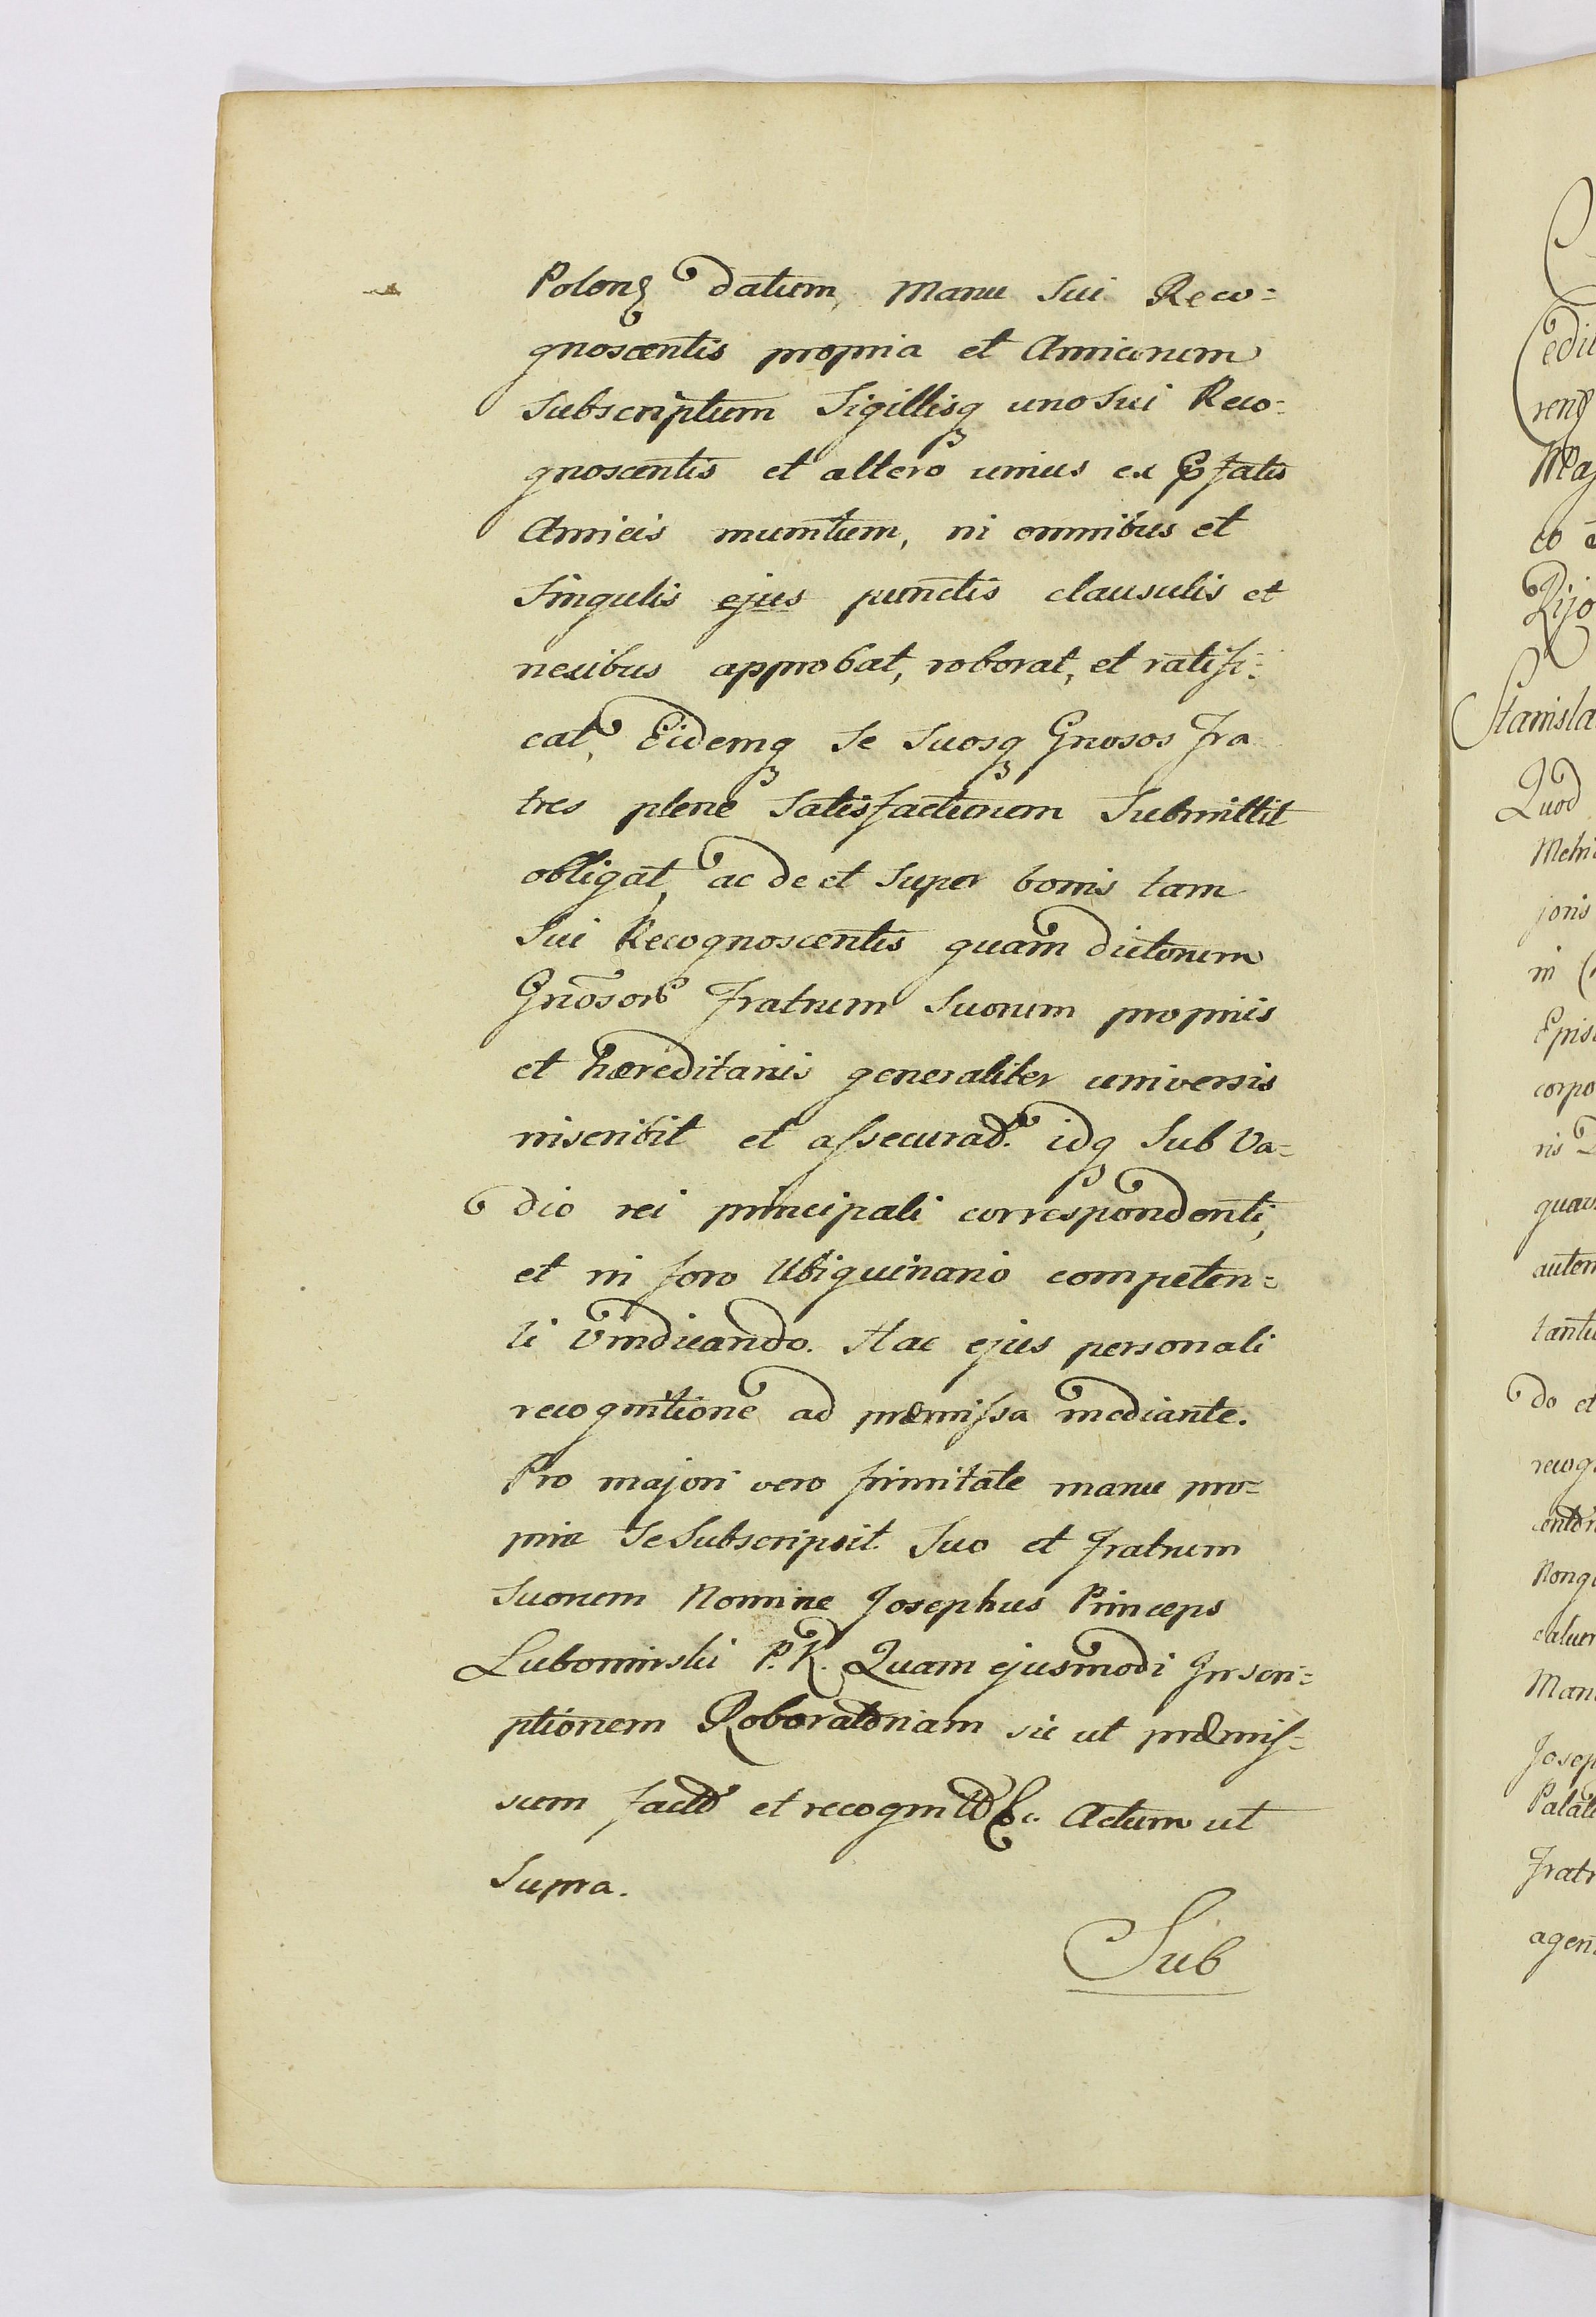 Polonę datum, Manu Sui Reco=
gnoscentis propria et Amicorum
Subscriptum Sigillisq uno Sui Reco=
gnoscentis et altero unius ex Pfatis
Amicis munitum, in omnibus et
Singulis ejus punctis clausulis et
nexibus approbat, roborat, et ratifi=
cat, Eidemq Se Suosq Gnosos Fra
tres plene Satisfacturum Submittit
obligat, ac de et Super bonis tam
Sui Recognoscentis quam dictorum
Gnōsor Fratrum Suorum propriis
et hæreditariis generaliter universis
inscribit et assecurad. idq Sub Va=
dio rei principali correspondenti,
et in foro Ubiquinario competen=
ti vindicando. Hac ejus personali
recognitione ad præmissa mediante.
Pro majori vero firmitate manu pro=
pria Se Subscripsit Suo et Fratrum
Suorum Nomine Josephus Princeps
Lubomirski P. K. Quam ejusmodi Inscri=
ptionem Roboratoriam sic ut præmis=
sum fact et recognit &c. Actum ut
Supra.
Sub
Quod
in
corpo
do et